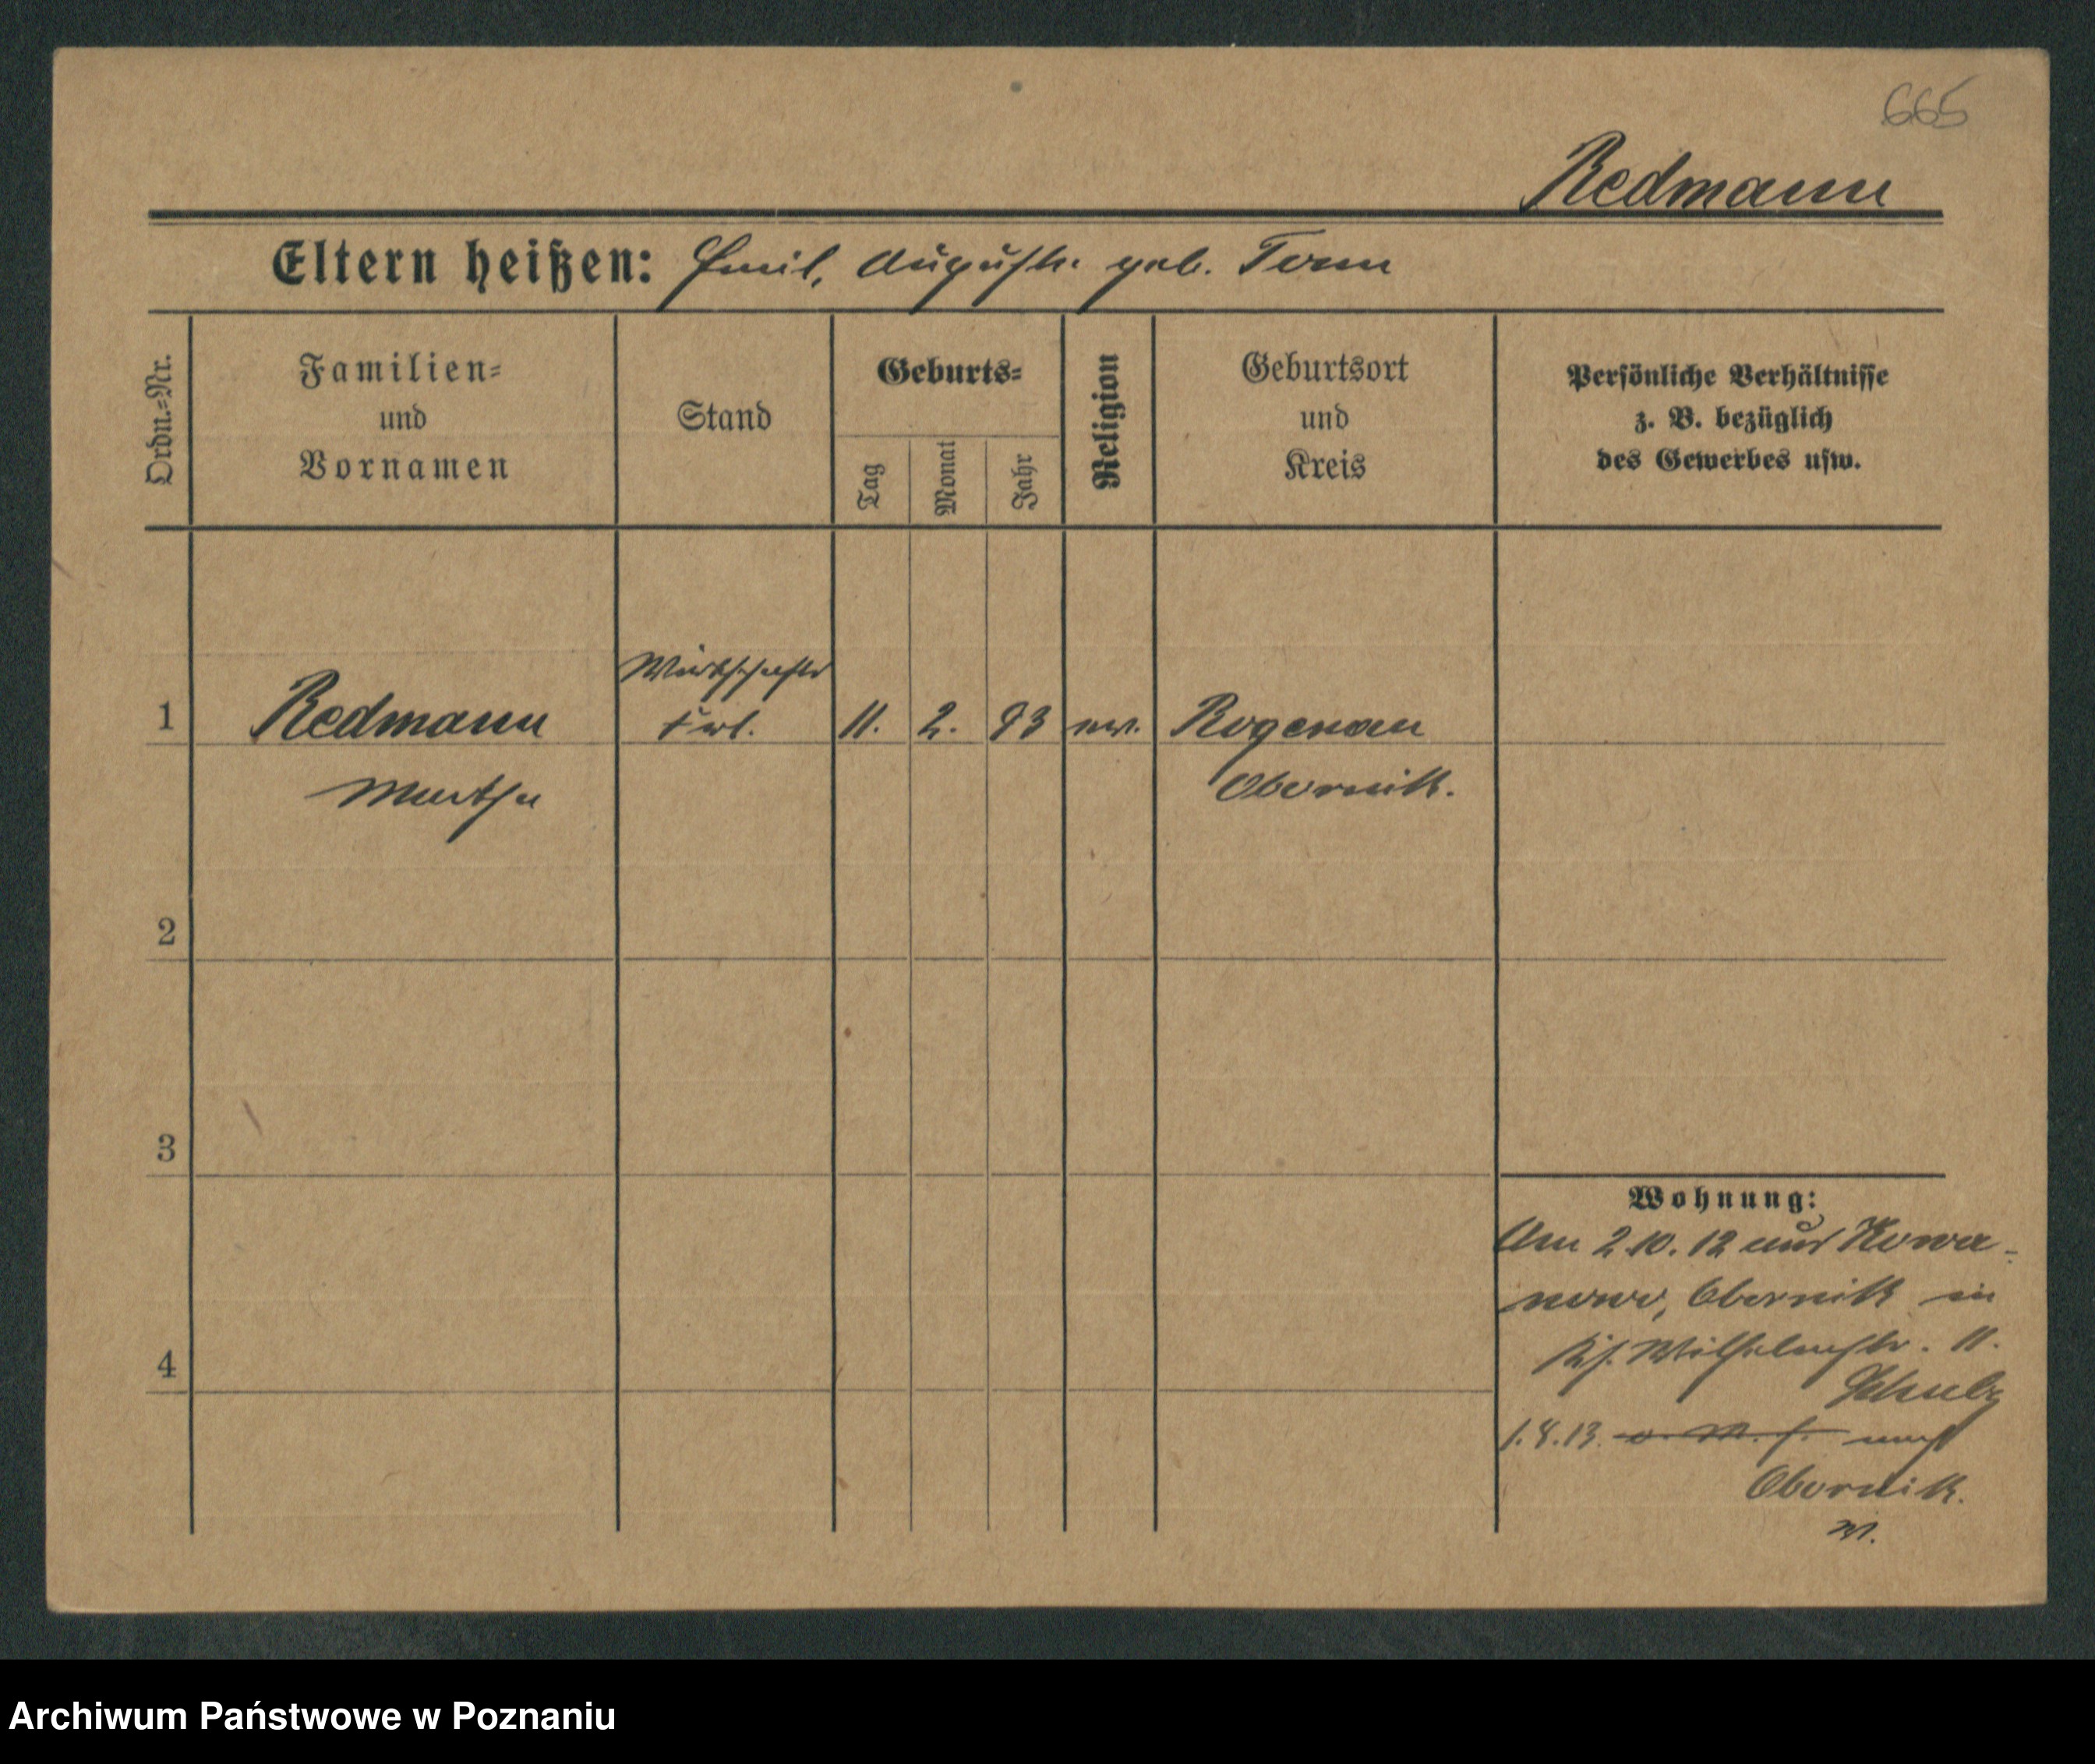 665
Redmann
Eltern heißen: Emil, Auguste geb. Tonn
Ordn.-Nr.
Familien-
und
Vornamen
Stand
Geburts-
Tag
Monat
Jahr
Religion
Geburtsort
und
Kreis
Persönliche Verhältnisse
z. B. bezüglich
des Gewerbes usw.
1
Redmann
Martha
Wirtschafts
Frl.
11. 2. 93
ev.
Rogenau
Obernik.
2
3
4
Wohnung:
Am 2.10.12 aus Kowa-
nowo, Obernik in
Wilhelmstr. 11.
Schulz
1.4.13. nach
Obornik.
Archiwum Państwowe w Poznaniu